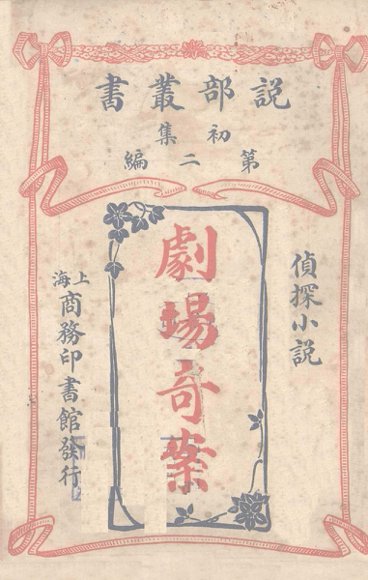 說部叢書
初集
第二編
偵探小說
劇場奇案
上海
商務印書館發行